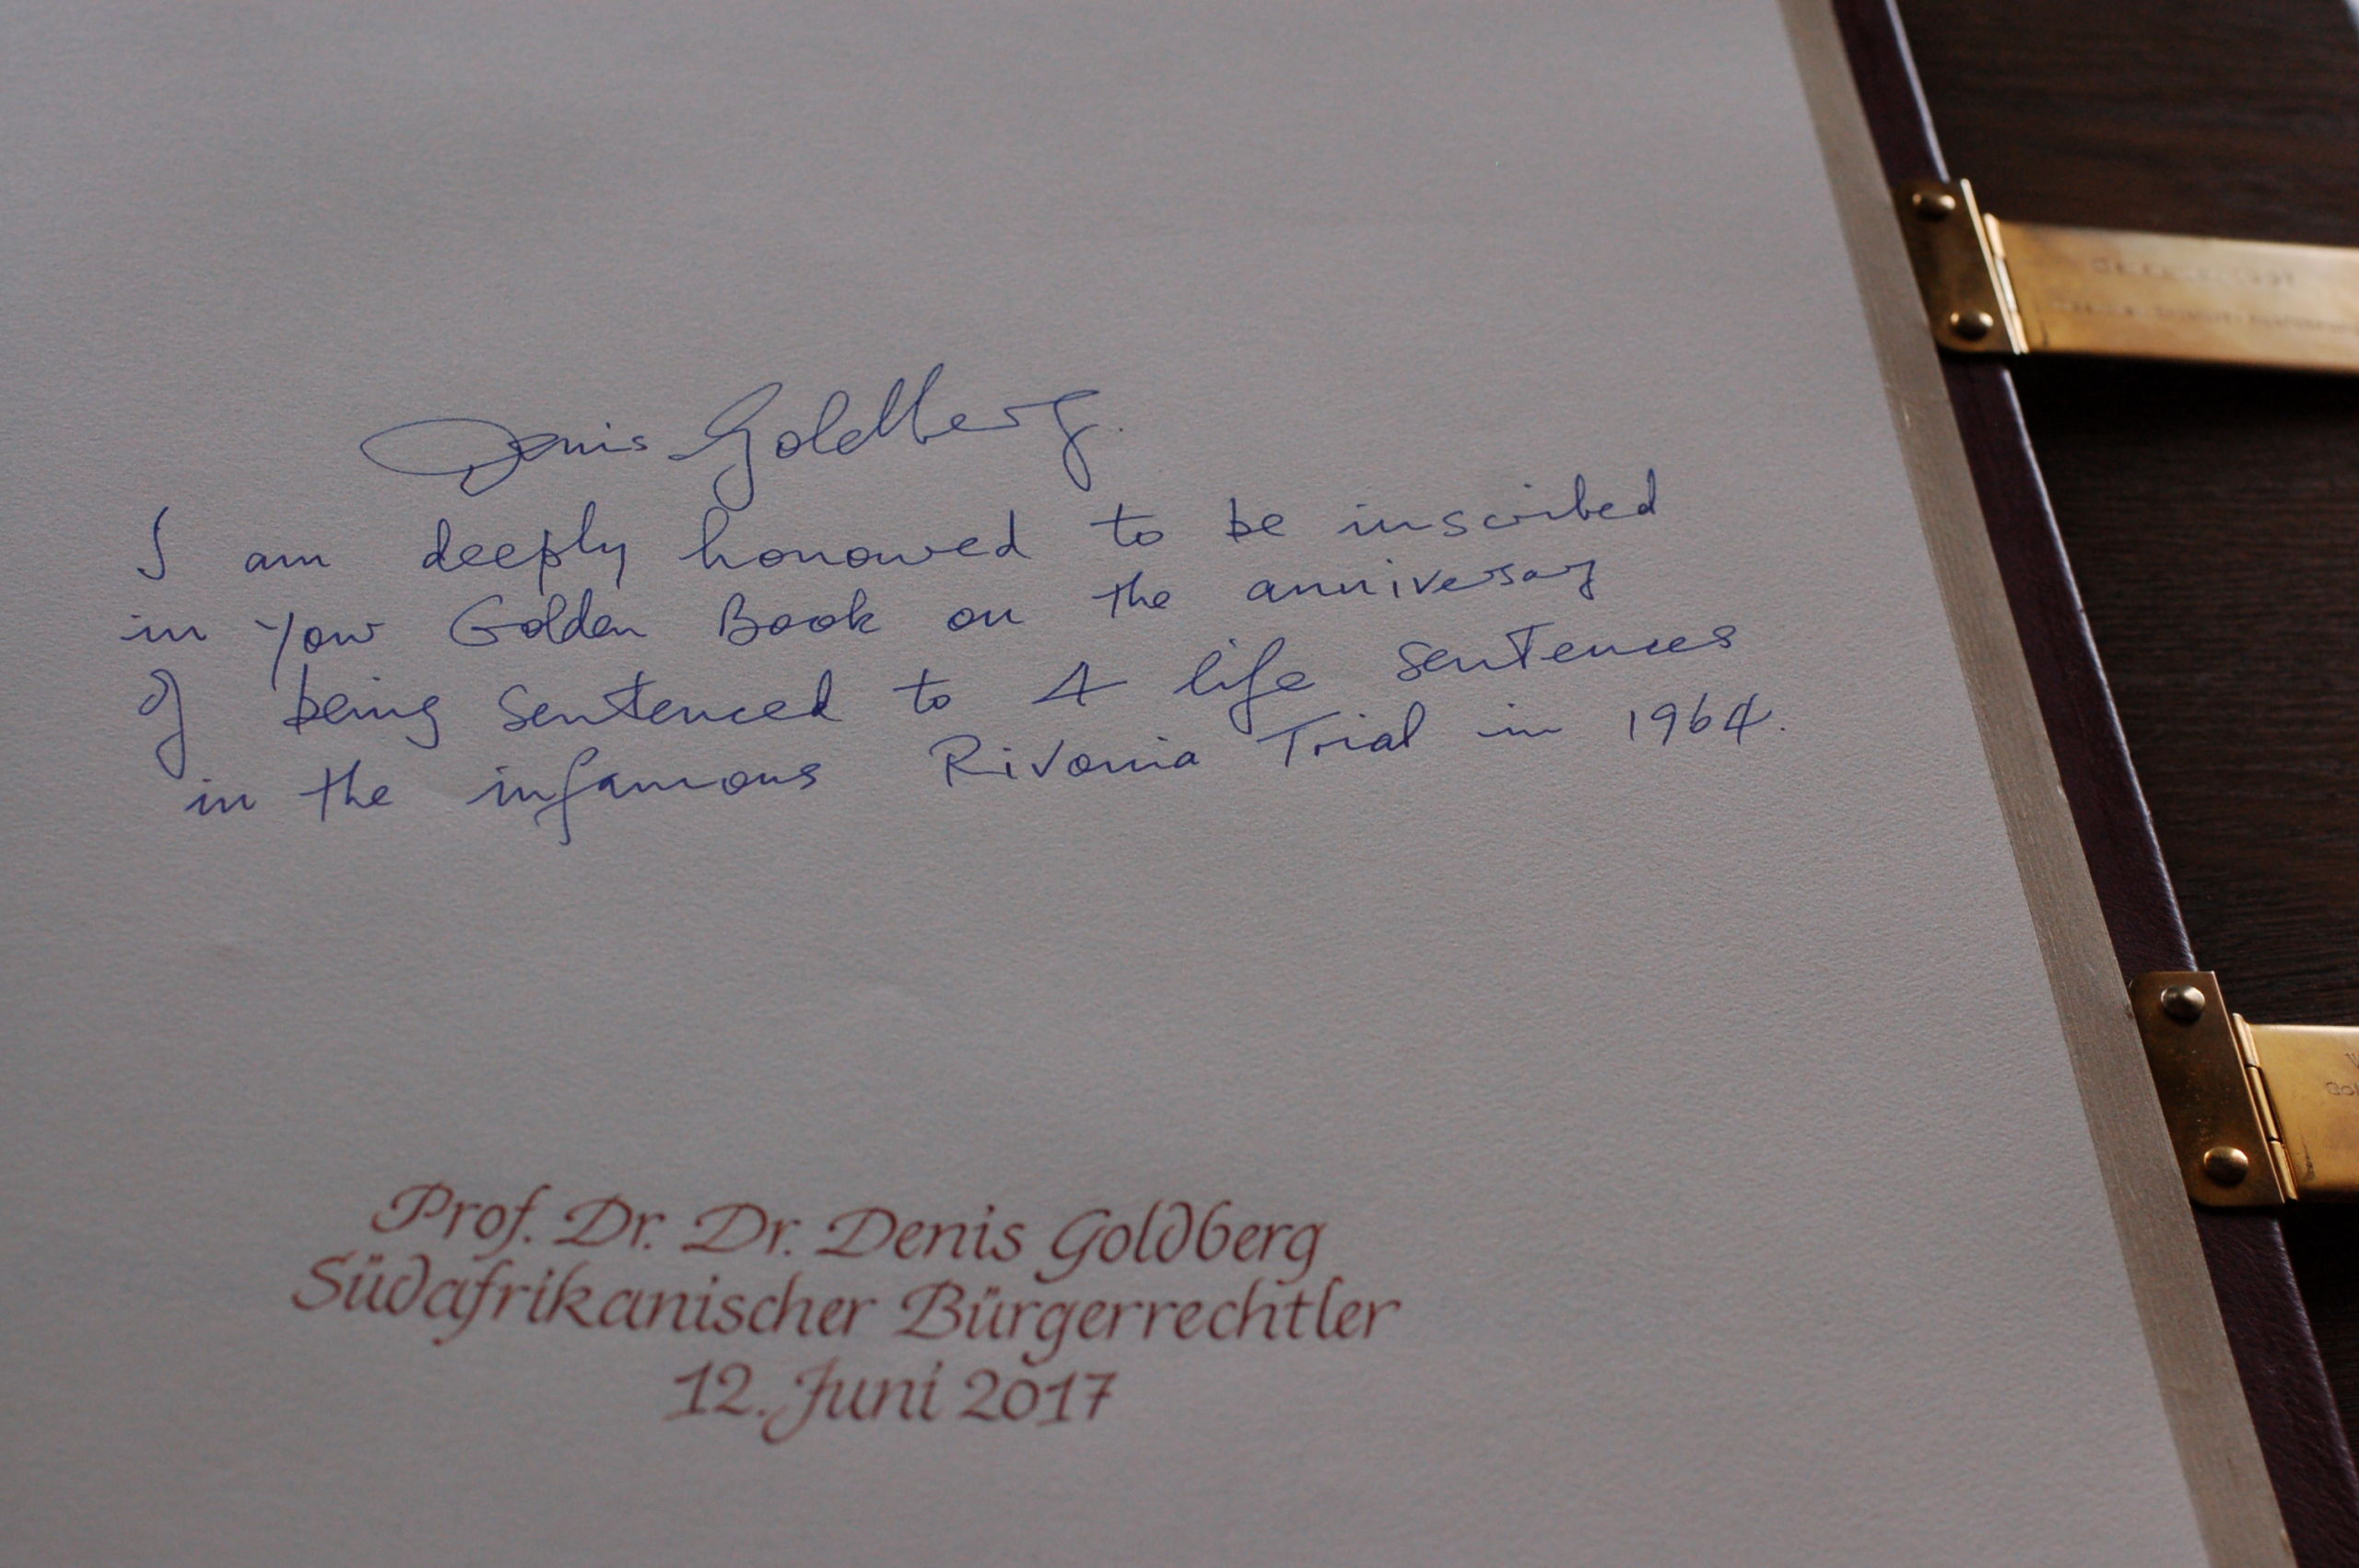 Denis Goldberg.
I am deeply honoured to be inscribed
in your Golden Book on the anniversary
of being sentenced to 4 life sentences
in the infamous Rivonia Trial in 1964.
Prof. Dr. Dr. Denis Goldberg
Südafrikanischer Bürgerrechtler
12. Juni 2017